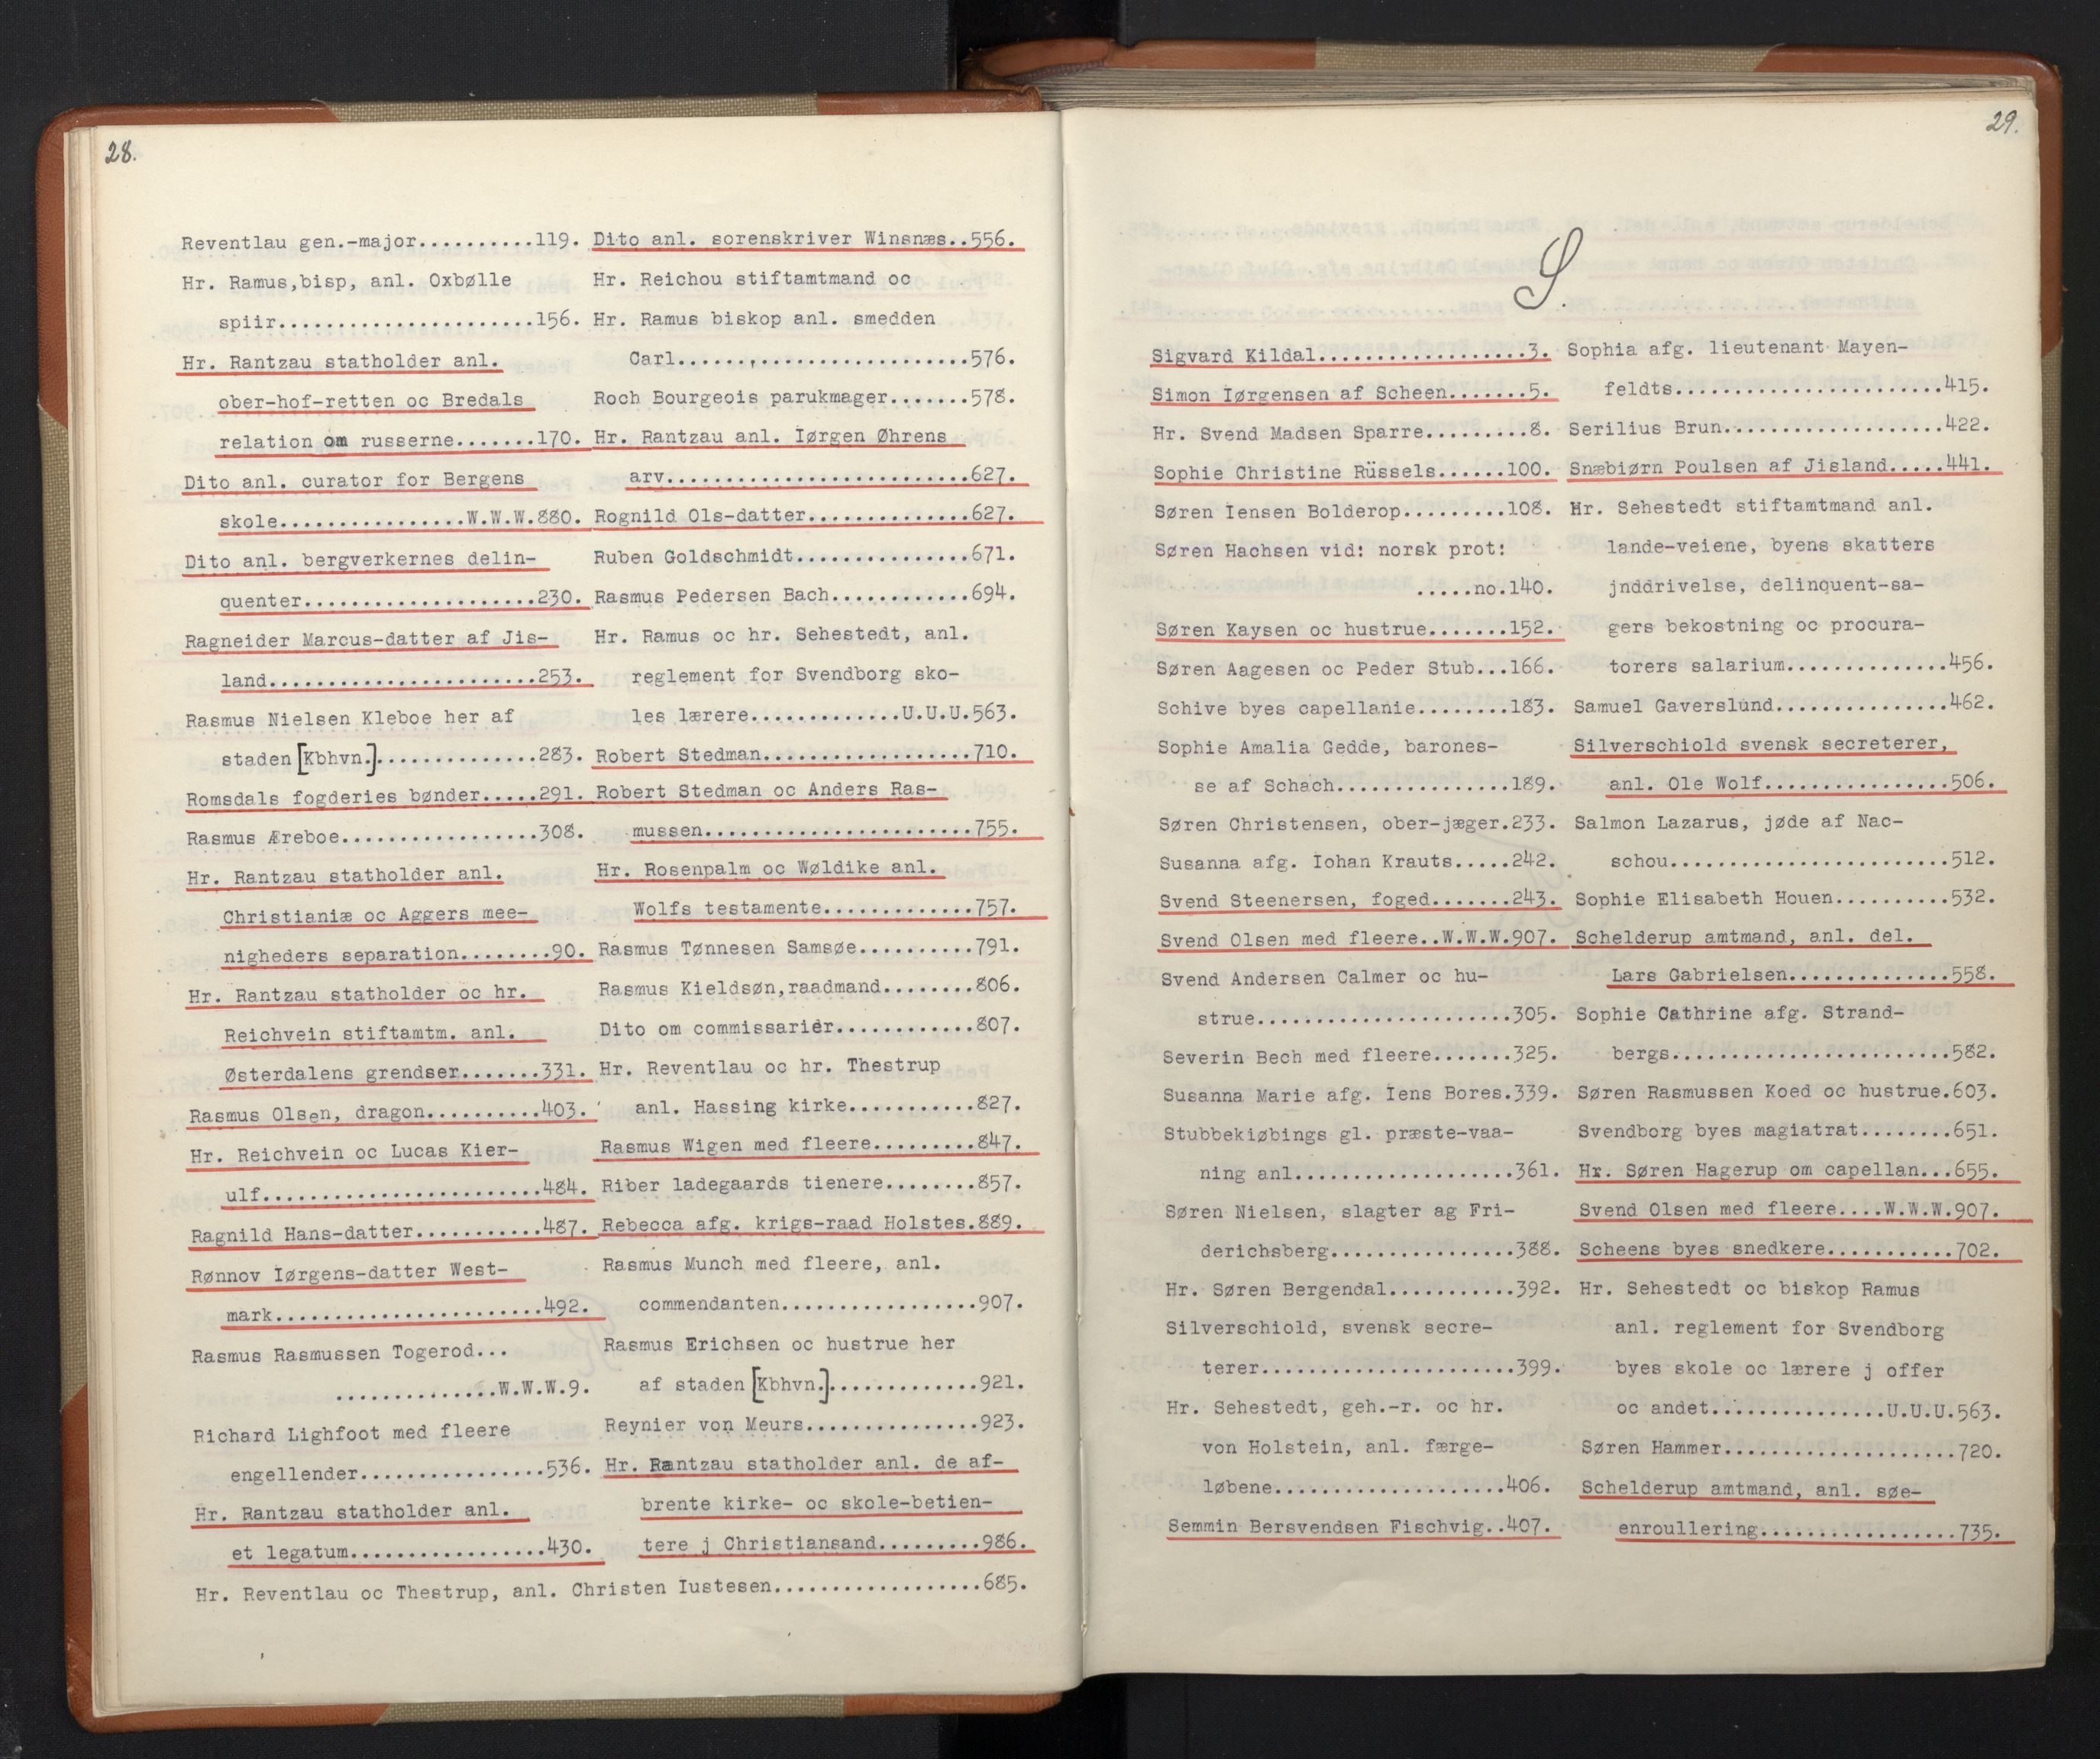 28.
Reventlau gen.-major..........119.
Hr. Ramus,bisp, anl. Oxbølle
spiir......................156.
Hr. Rantzau statholder anl.
ober-hof-retten oc Bredals
relation om russerne.......170.
Dito anl. curator for Bergens
skole................W.W.W.880.
Dito anl. bergverkernes delin-
quenter....................230.
Ragneider Marcus-datter af Jis-
land.......................253.
Rasmus Nielsen Kleboe her af
staden [Kbhvn.]..............283.
Romsdals fogderies bønder.....291.
Rasmus Æreboe.................308.
Hr. Rantzau statholder anl.
Christianiæ oc Aggers mee-
nigheders separation........90.
Hr. Rantzau statholder oc hr.
Reichvein stiftamtm. anl.
Østerdalens grendser.......331.
Rasmus Olsen, dragon..........403.
Hr. Reichvein oc Lucas Kier-
ulf........................484.
Ragnild Hans-datter...........487.
Rønnov Iørgens-datter West-
mark.......................492.
Rasmus Rasmussen Togerod...
..............W.W.W.9.
Richard Lighfoot med fleere
engellender................536.
Hr. Rantzau statholder anl.
et legatum.................430.
Dito anl. sorenskriver Winsnæs..556.
Hr. Reichou stiftamtmand oc
Hr. Ramus biskop anl. smedden
Carl.........................576.
Roch Bourgeois parukmager.......578.
Hr. Rantzau anl. Iørgen Øhrens
arv..........................627.
Rognild Ols-datter..............627.
Ruben Goldschmidt...............671.
Rasmus Pedersen Bach............694.
Hr. Ramus oc hr. Sehestedt, anl.
reglement for Svendborg sko-
les lærere.............U.U.U.563.
Robert Stedman..................710.
Robert Stedman oc Anders Ras-
mussen.......................755.
Hr. Rosenpalm oc Wøldike anl.
Wolfs testamente.............757.
Rasmus Tønnesen Samsøe..........791.
Rasmus Kieldsøn,raadmand........806.
Dito om commissariër............807.
Hr. Reventlau oc hr. Thestrup
anl. Hassing kirke...........827.
Rasmus Wigen med fleere.........847.
Riber ladegaards tienere........857.
Rebecca afg. krigs-raad Holstes.889.
Rasmus Munch med fleere, anl.
commendanten.................907.
Rasmus Erichsen oc hustrue her
af staden [Kbhvn.].............921.
Reynier von Meurs...............923.
Hr. Rantzau statholder anl. de af-
brente kirke- oc skole-betien-
tere j Christiansand.........986.
Hr. Reventlau oc Thestrup, anl. Christen Iustesen..................685.
29.
S.
Sigvard Kildal..................3.
Simon Iørgensen af Scheen.......5.
Hr. Svend Madsen Sparre.........8.
Sophie Christine Rüssels......100.
Søren Iensen Bolderop.........108.
Søren Hachsen vid: norsk prot:
.....no.140.
Søren Kaysen oc hustrue.......152.
Søren Aagesen oc Peder Stub...166.
Schive byes capellanie........183.
Sophie Amalia Gedde, barones-
se af Schach...............189.
Søren Christensen, ober-jæger.233.
Susanna afg. Iohan Krauts.....242.
Svend Steenersen, foged.......243.
Svend Olsen med fleere..W.W.W.907.
Svend Andersen Calmer oc hu-
strue......................305.
Severin Bech med fleere.......325.
Susanna Marie afg. Iens Bores.339.
Stubbekiøbings gl. præste-vaa-
ning anl...................361.
Søren Nielsen, slagter ag Fri-
derichsberg................388.
Hr. Søren Bergendal...........392.
Silverschiold, svensk secre-
terer......................399.
Hr. Sehestedt, geh.-r. oc hr.
von Holstein, anl. færge-
løbene....................406.
Semmin Bersvendsen Fischvig..407.
Sophia afg. lieutenant Mayen-
feldts.......................415.
Serilius Brun...................422.
Snæbiørn Poulsen af Jisland.....441.
Hr. Sehestedt stiftamtmand anl.
lande-veiene, byens skatters
jnddrivelse, delinquent-sa-
gers bekostning oc procura-
torers salarium..............456.
Samuel Gaverslund...............462.
Silverschiold svensk secreterer,
anl. Ole Wolf................506.
Salmon Lazarus, jøde af Nac-
schou........................512.
Sophie Elisabeth Houen..........532.
Schelderup amtmand, anl. del.
Lars Gabrielsen..............558.
Sophie Cathrine afg. Strand-
bergs........................582.
Søren Rasmussen Koed oc hustrue.603.
Svendborg byes magiatrat........651.
Hr. Søren Hagerup om capellan...655.
Svend Olsen med fleere....W.W.W.907.
Scheens byes snedkere...........702.
Hr. Sehestedt oc biskop Ramus
anl. reglement for Svendborg
byes skole oc lærere j offer
oc andet...............U.U.U.563.
Søren Hammer....................720.
Schelderup amtmand, anl. søe-
enroullering.................735.